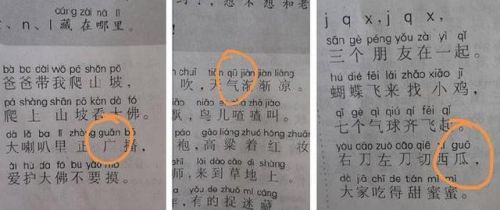 cáng zài nǎ lǐ
、n、l 藏 在 哪 里 。
bà ba dài wǒ pá shān pō
爸 爸 带 我 爬 山 坡 ,
pá shàng shān pō kàn dà fó
爬 上 山 坡 看 大 佛 。
dà lǎ ba lǐ zhèng guǎn bō
大 喇 叭 里 正 广 播 ,
ài hù dà fó bú yào mō
爱 护 大 佛 不 要 摸 。
chuī tiān qū jiàn jiàn liáng
吹 , 天 气 渐 渐 凉 。
niǎo zhā zhā jiào
飘 , 鸟 儿 喳 喳 叫 。
gāo liáng zhuó hóng zhuāng
袍 , 高 粱 着 红 妆
lái dào cǎo dì shàng
师 , 来 到 草 地 上 。
yǒu de zhuō mí cáng
, 有 的 捉 迷 藏
j q x , j q x ,
sān gè péng yǒu zài yì qǐ
三 个 朋 友 在 一 起 。
hú dié fēi lái zhǎo xiǎo jī
蝴 蝶 飞 来 找 小 鸡 ,
qī gè qì qiú qí fēi qǐ
七 个 气 球 齐 飞 起 。
yòu dāo zuǒ dāo qiē xī guō
右 刀 左 刀 切 西 瓜 ,
dà jiā chī de tián mì mì
大 家 吃 得 甜 蜜 蜜 。